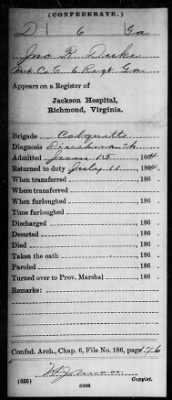 (CONFEDERATE.)
D | 6 | Ga
Jno R. Duke
Co. E. 6 Regt. Ga
Appears on a Register of
Jackson Hospital,
Richmond, Virginia.
Brigade Colquitts
Diagnosis
Admitted June 15, 1864
Returned to duty July 11, 1864
When transferred , 186
Where transferred
When furloughed , 186
Time furloughed
Discharged , 186
Deserted , 186
Died , 186
Taken the oath , 186
Paroled , 186
Turned over to Prov. Marshal , 186
Remarks:
Confed. Arch., Chap. 6, File No. 186, page 176
(635) 5008 Copyist.